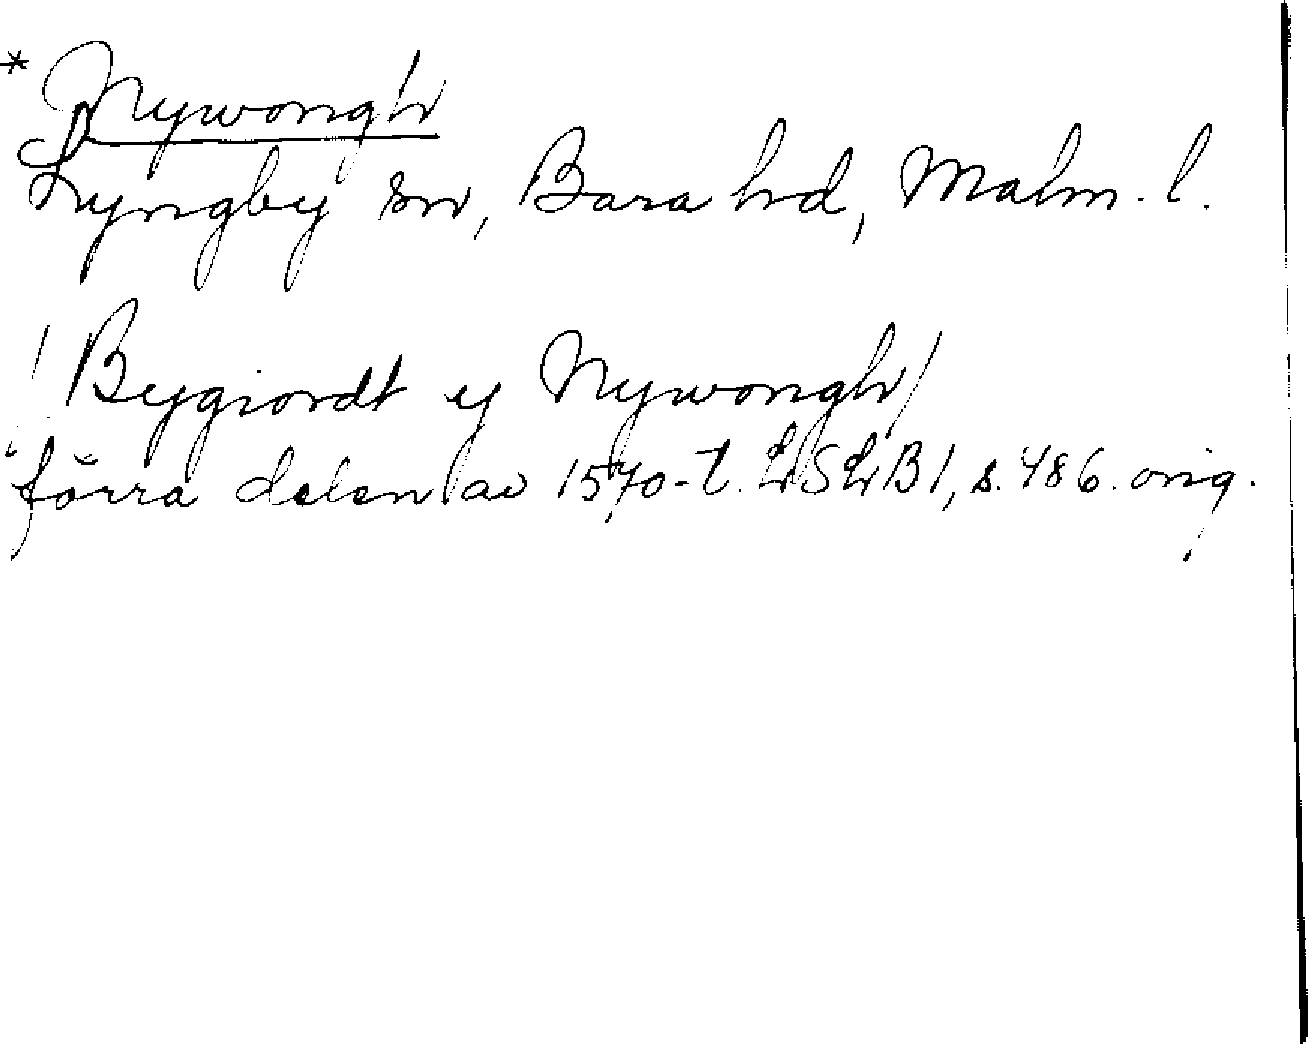 * Nywongh
Lyngby sn, Bara hd, Malm. l.
/ Bygiordt y Nywongh /
förra delen av 1570-t. LSLB I, s. 486. orig.